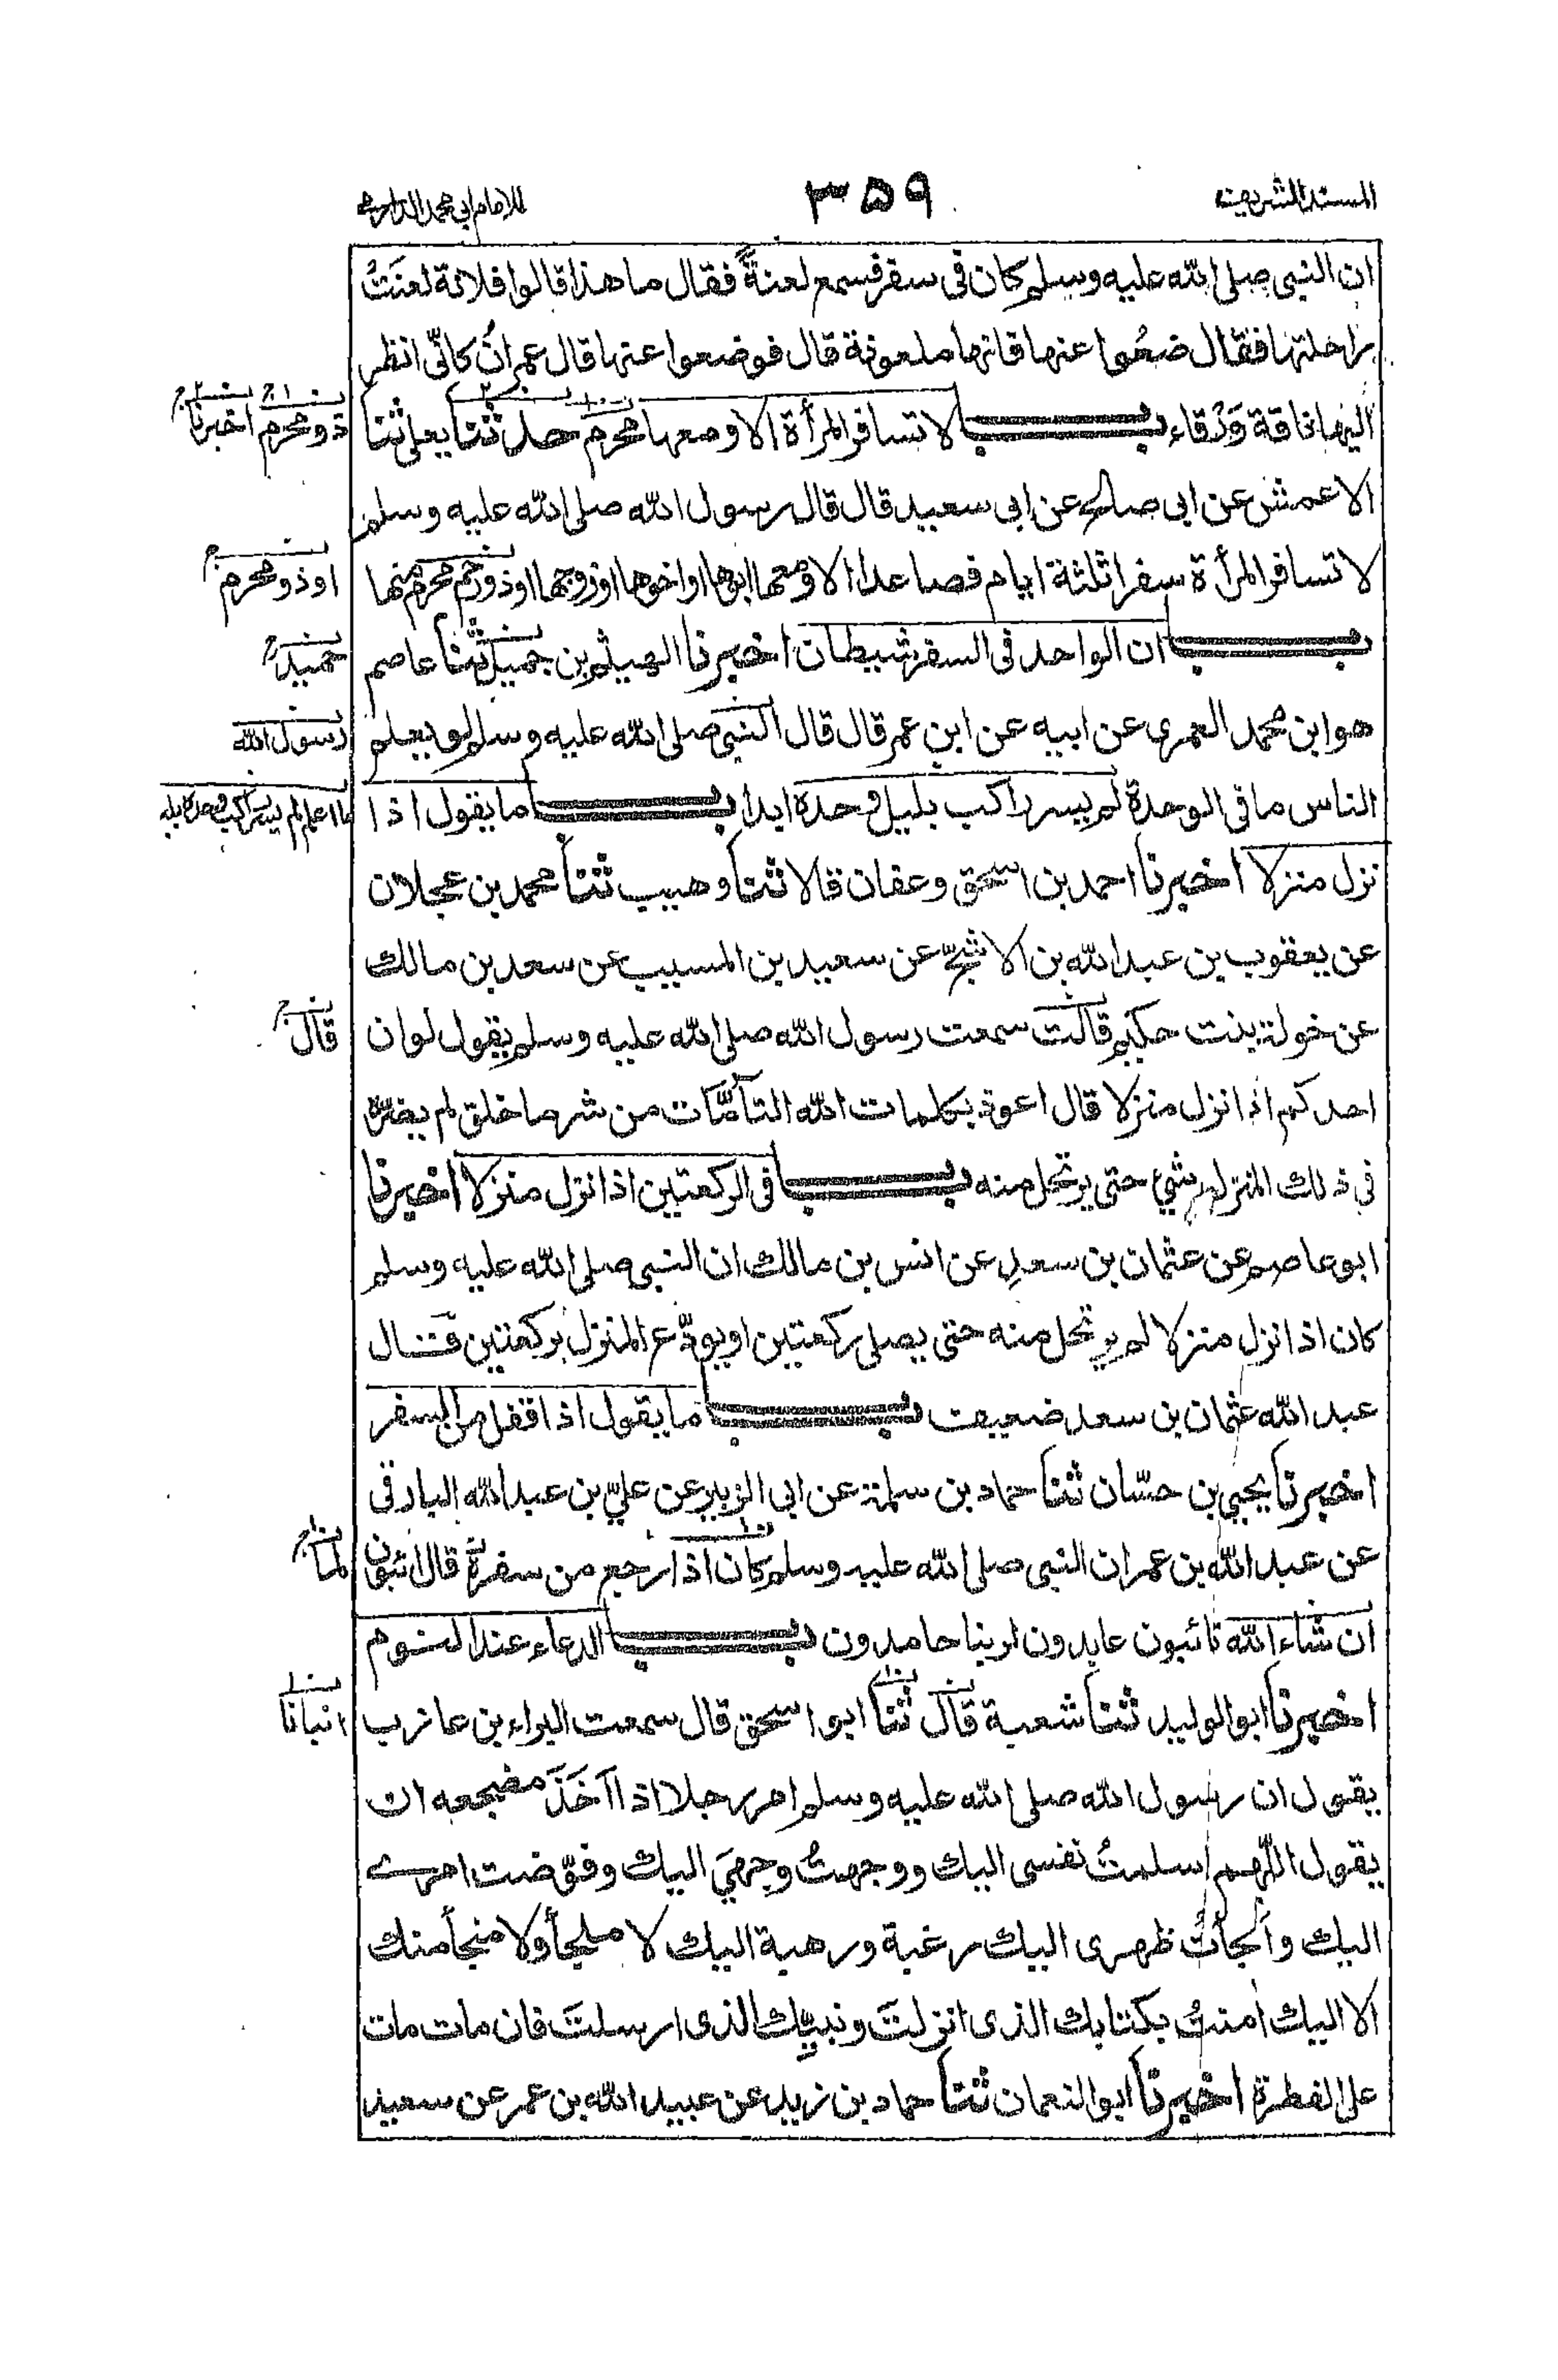 المسند الشريف
۳۵۹
للامام ابي محمد الدارمي
ان النبي صلى الله عليه وسلم كان فى سفر فسمع لعنةً فقال ما هذا قالوا فلانة لعنَتْ
راحلتها فقال ضعُوا عنها فانها ملعونة قال فوضعوا عنها قال عمرانُ كانّى انظر
اليها ناقة وَرْقاء بــــاب لا تسافر المرأة الا ومعها محرم حدثنا يعلى ثنا
ذو محرم
اخبرنا
الاعمش عن ابى صالح عن ابى سعيد قال قال رسول الله صلى الله عليه وسلم
لا تسافر المرأة سفرا ثلثة ايام فصاعدا الا ومعها ابوها او اخوها او زوجها او ذو رحم محرم منها
او ذو محرم
بــــاب ان الواحد فى السفر شيطان اخبرنا الهيثم بن جميل ثنا عاصم
حميد
هو ابن محمد العمرى عن ابيه عن ابن عمر قال قال النبى صلى الله عليه وسلم لو يعلم
رسول الله
الناس ما فى الوحدة لم يسر راكب بليل وحده ابدا بــــاب ما يقول اذا
ما اعلم لم يسر راكب وحده بليل
نزل منزلا اخبرنا احمد بن اسحق وعفان قالا ثنا وهيب ثنا محمد بن عجلان
عن يعقوب بن عبد الله بن الاشجّ عن سعيد بن المسيب عن سعد بن مالك
عن خولة بنت حكيم قالت سمعت رسول الله صلى الله عليه وسلم يقول لو ان
قال
احدكم اذا نزل منزلا قال اعوذ بكلمات الله التامّات من شر ما خلق لم يضرّه
فى ذلك المنزل شىء حتى يرتحل منه بــــاب فى الركعتين اذا نزل منزلا اخبرنا
ابو عاصم عن عثمان بن سعد عن انس بن مالك ان النبى صلى الله عليه وسلم
كان اذا نزل منزلا لم يرتحل منه حتى يصلى ركعتين او يودّع المنزل بركعتين قال
عبد الله عثمان بن سعد ضعيف بــــاب ما يقول اذا قفل من السفر
اخبرنا يحيى بن حسّان ثنا حماد بن سلمة عن ابى الزبير عن علىّ بن عبد الله البارقى
عن عبد الله بن عمر ان النبى صلى الله عليه وسلم كان اذا رجع من سفره قال ائبون
لما
ان شاء الله تائبون عابدون لربنا حامدون بــــاب الدعاء عند النوم
اخبرنا ابو الوليد ثنا شعبة قال ثنا ابو اسحق قال سمعت البراء بن عازب
انبانا
يقول ان رسول الله صلى الله عليه وسلم امر رجلا اذا اَخَذَ مضجعه ان
يقول اللّهم اسلمتُ نفسى اليك ووجهتُ وجهىَ اليك وفوّضت امرى
اليك وألجأتُ ظهرى اليك رغبة ورهبة اليك لا ملجأ ولا منجأ منك
الا اليك امنتُ بكتابك الذى انزلتَ ونبيّك الذى ارسلتَ فان مات مات
على الفطرة اخبرنا ابو النعمان ثنا حماد بن زيد عن عبيد الله بن عمر عن سعيد